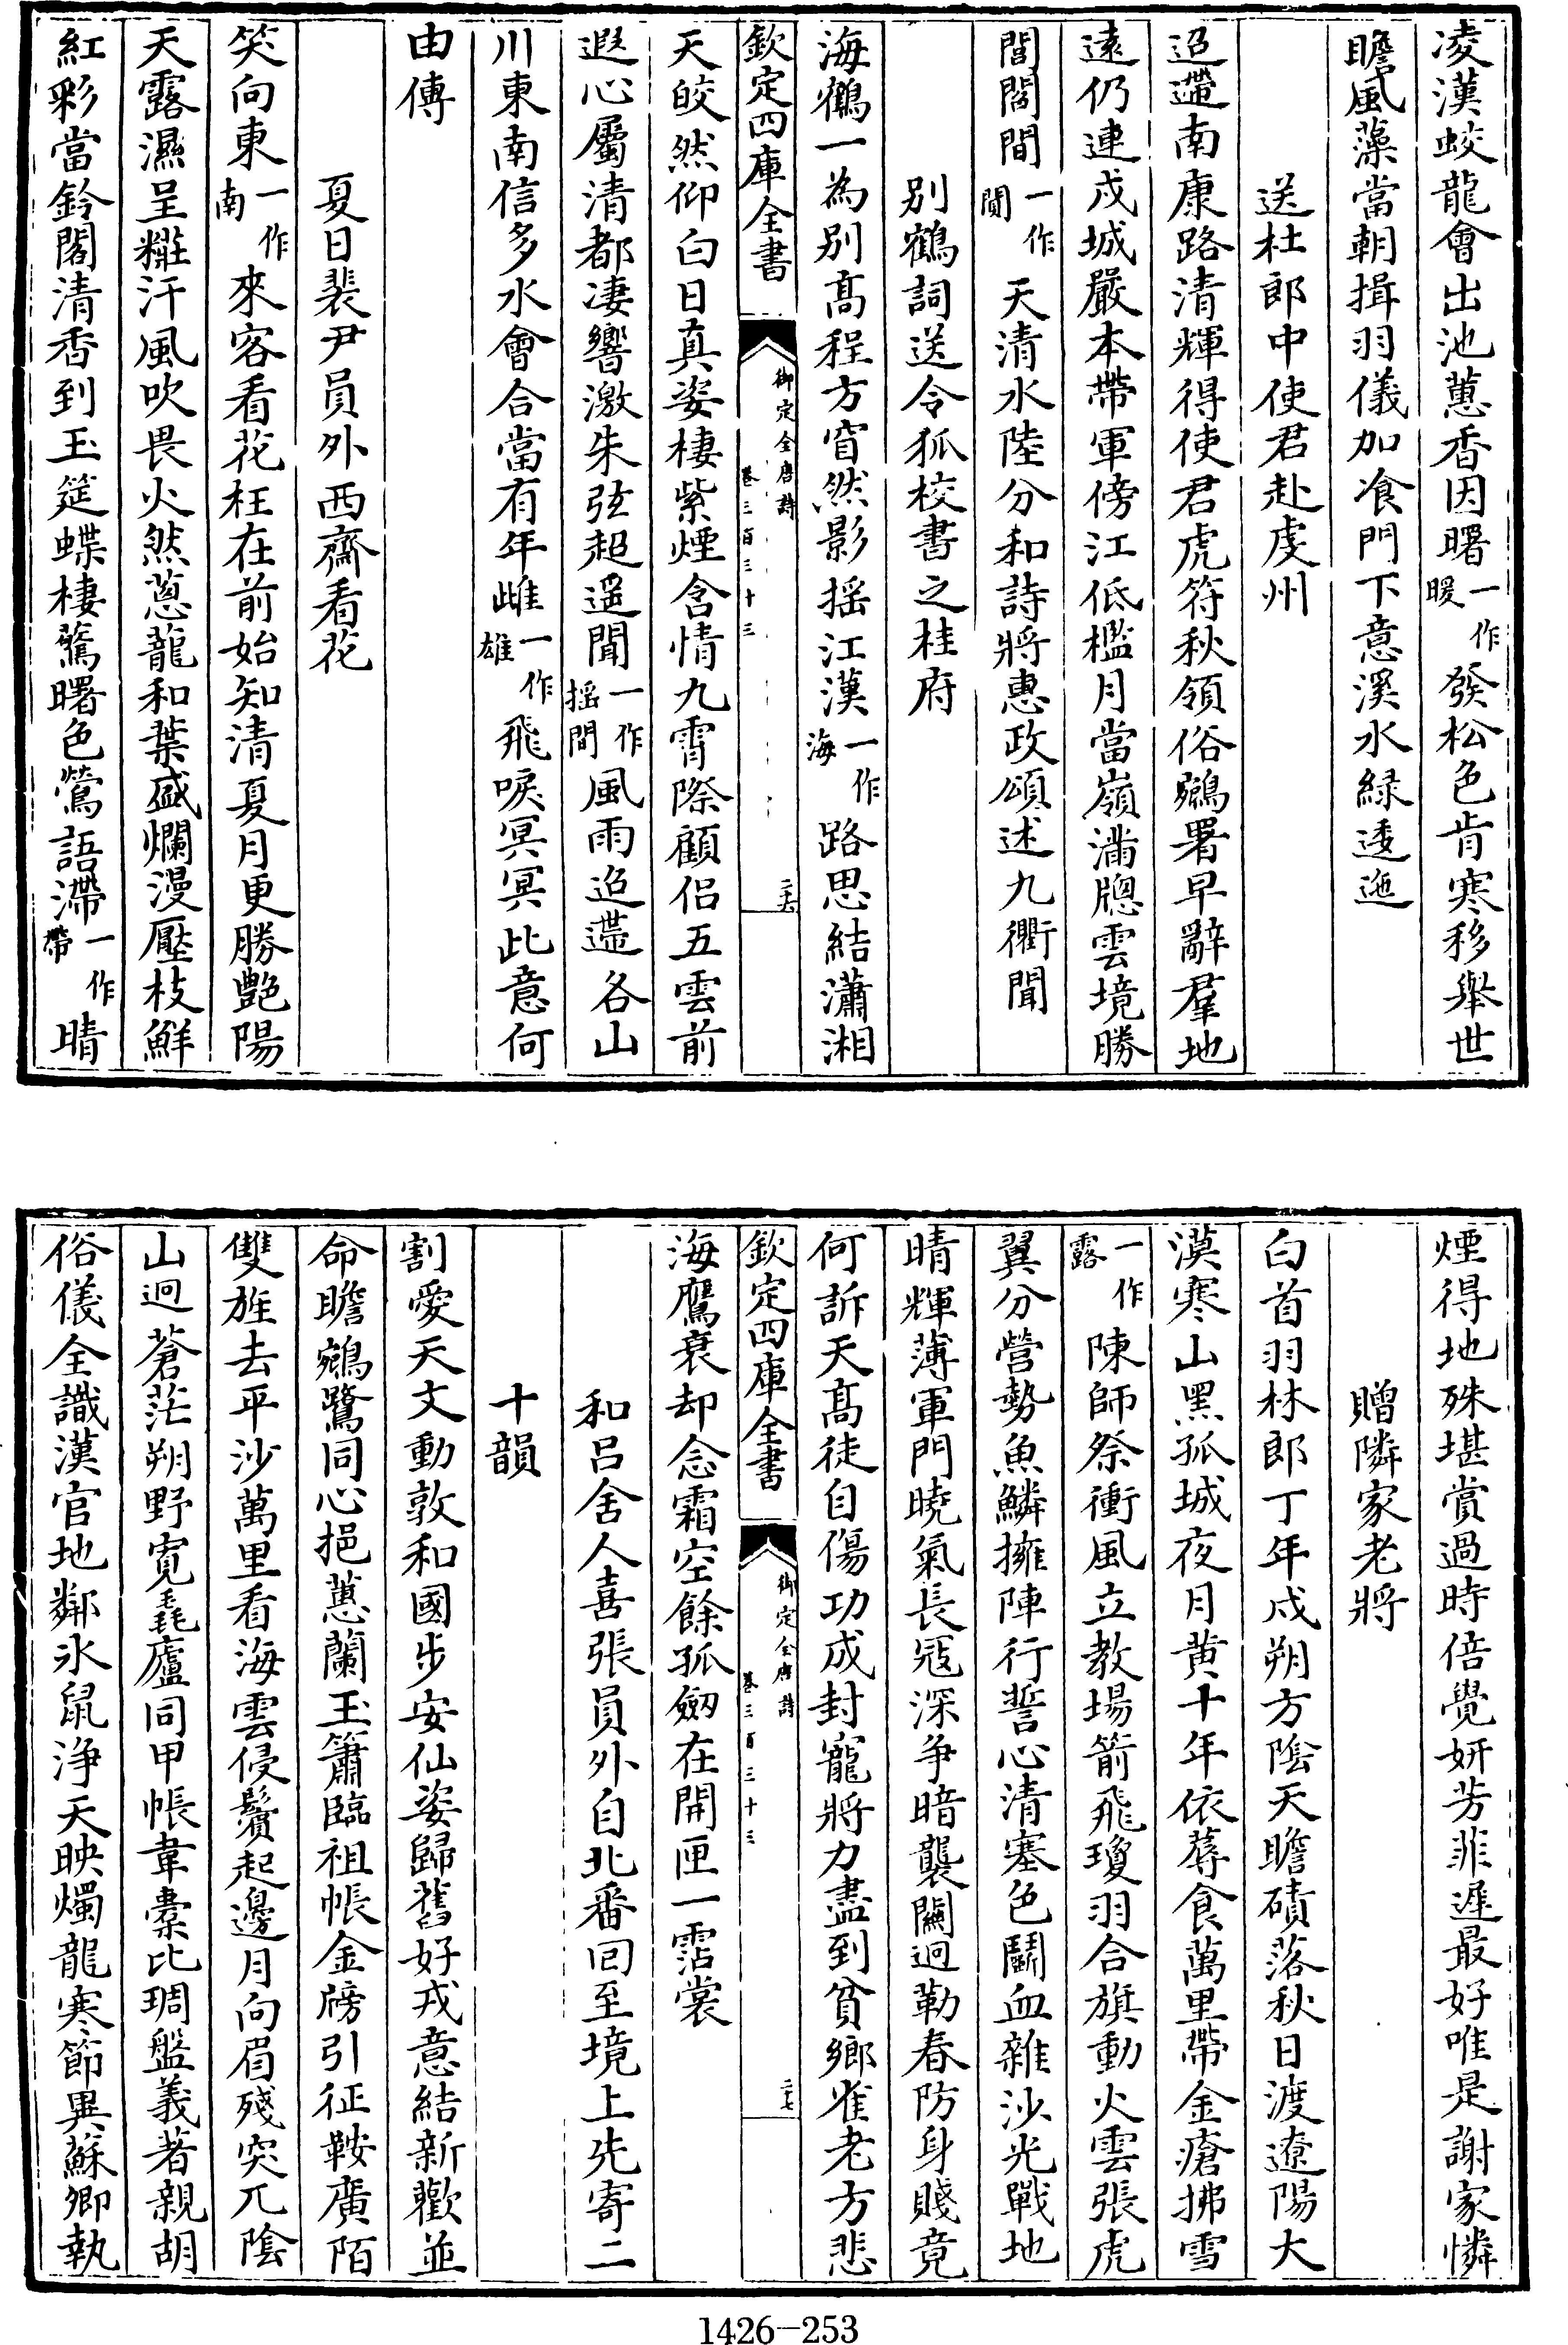 凌漢蛟龍會出池蕙香因曙一作暖發松色肯寒移舉世
瞻風藻當朝揖羽儀加飡門下意溪水緑逶迤
送杜郎中使君赴虔州
迢遰南康路清輝得使君虎符秋領俗鵷署早辭羣地
遠仍連戍城嚴本帶軍傍江低檻月當嶺滿牕雲境勝
閭閻間一作閴天清水陸分和詩將惠政頌述九衢聞
别鶴詞送令狐校書之桂府
海鶴一為别髙程方窅然影揺江漢一作海路思結瀟湘
欽定四庫全書
御定全唐詩
卷三百三十三
二十六
天皎然仰白日真姿棲紫煙含情九霄際顧侣五雲前
遐心屬清都凄響激朱弦超遥聞一作揺間風雨迢遰各山
川東南信多水會合當有年雌一作雄飛唳冥冥此意何
由傳
夏日裴尹員外西齋看花
笑向東一作南來客看花枉在前始知清夏月更勝艶陽
天露濕呈糚汗風吹畏火然葱蘢和葉盛爛漫壓枝鮮
紅彩當鈴閣清香到玉筵蝶棲驚曙色鶯語滯一作帶晴
煙得地殊堪賞過時倍覺妍芳菲遲最好唯是謝家憐
贈隣家老將
白首羽林郎丁年戍朔方隂天瞻磧落秋日渡遼陽大
漠寒山黑孤城夜月黄十年依蓐食萬里帶金瘡拂雪
一作露陳師祭衝風立教場箭飛瓊羽合旗動火雲張虎
翼分營勢魚鱗擁陣行誓心清塞色鬬血雜沙光戰地
晴輝薄軍門曉氣長寇深争暗襲闗迥勒春防身賤竟
何訴天髙徒自傷功成封寵將力盡到貧鄉雀老方悲
欽定四庫全書
御定全唐詩
卷三百三十三
二十七
海鷹衰却念霜空餘孤劒在開匣一霑裳
和吕舍人喜張員外自北番回至境上先寄二
十韻
割愛天文動敦和國步安仙姿歸舊好戎意結新歡並
命瞻鵷鷺同心挹蕙蘭玉簫臨祖帳金牓引征鞍廣陌
雙旌去平沙萬里看海雲侵鬢起邊月向眉殘突兀隂
山迥蒼茫朔野寛毳廬同甲帳韋橐比琱盤義著親胡
俗儀全識漢官地鄰氷鼠浄天映燭龍寒節異蘇卿執
1426-253